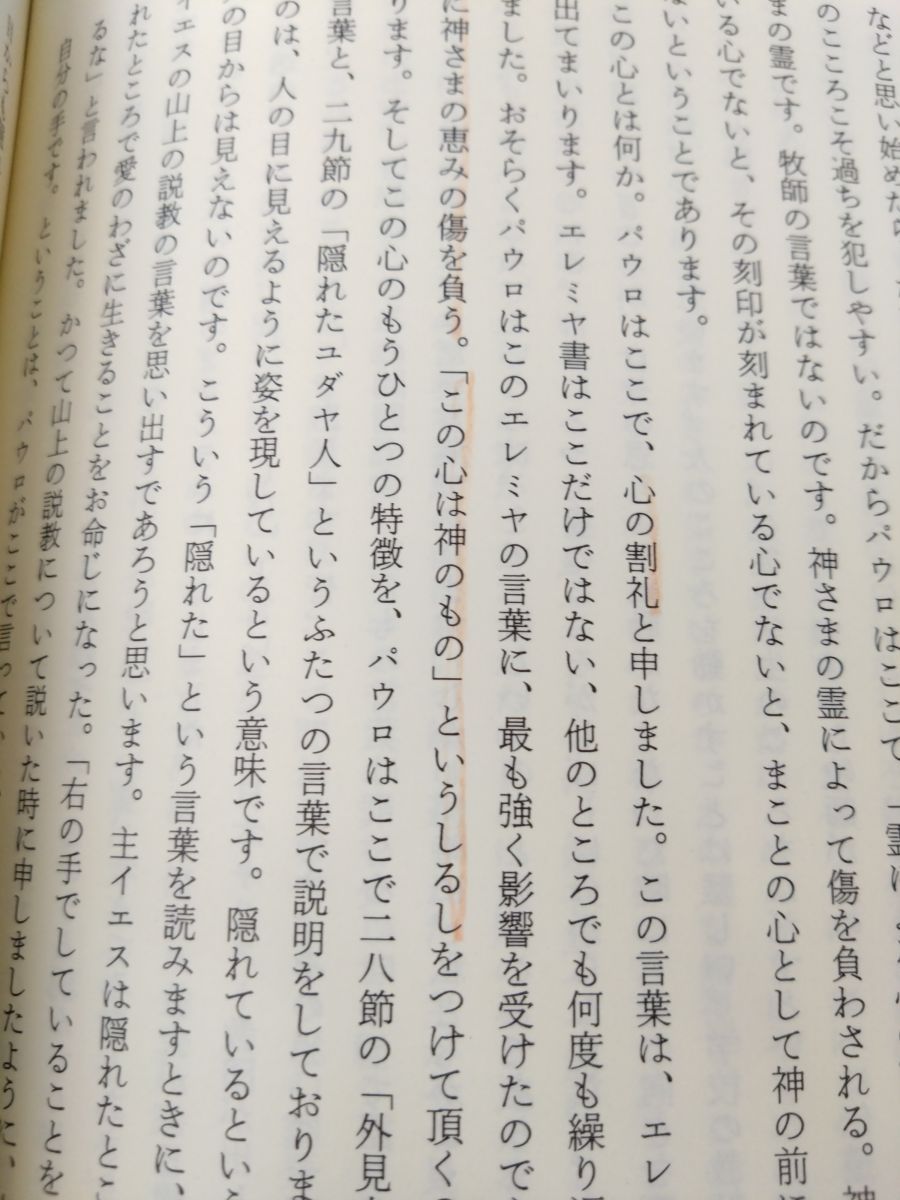 などと思い始めたら
のこころこそ過ちを犯しやすい。だからパウロはここで、「霊に
まの霊です。牧師の言葉ではないのです。神さまの霊によって傷を負わされる。神
いる心でないと、その刻印が刻まれている心でないと、まことの心として神の前に
ないということであります。
この心とは何か。パウロはここで、心の割礼と申しました。この言葉は、エレ
出てまいります。エレミヤ書はここだけではない、他のところでも何度も繰り返
ました。おそらくパウロはこのエレミヤの言葉に、最も強く影響を受けたので
に神さまの恵みの傷を負う。「この心は神のもの」というしるしをつけて頂く
ります。そしてこの心のもうひとつの特徴を、パウロはここで二八節の「外見
言葉と、二九節の「隠れたユダヤ人」というふたつの言葉で説明をしておりま
のは、人の目に見えるように姿を現しているという意味です。隠れているとい
の目からは見えないのです。こういう「隠れた」という言葉を読みますときに、
イエスの山上の説教の言葉を思い出すであろうと思います。主イエスは隠れたとこ
れたところで愛のわざに生きることをお命じになった。「右の手でしていることを
るな」と言われました。かつて山上の説教について説いた時に申しましたように、
自分の手です。ということは、パウロがここで言って